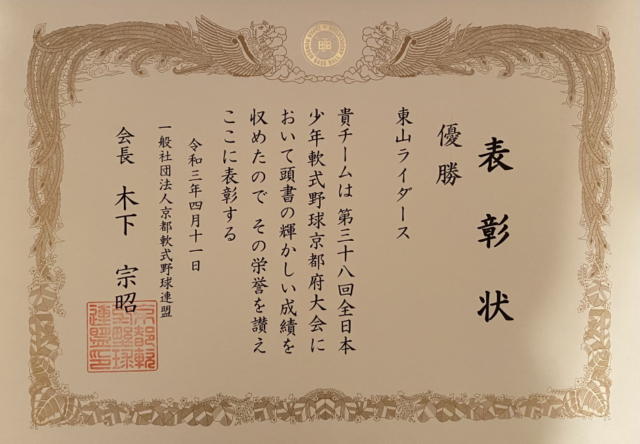 表彰状
優勝
東山ライダース
貴チームは 第三十八回全日本
少年軟式野球京都府大会に
おいて頭書の輝かしい成績を
収めたので その栄誉を讃え
ここに表彰する
令和三年四月十一日
一般社団法人京都軟式野球連盟
会長 木下 宗昭